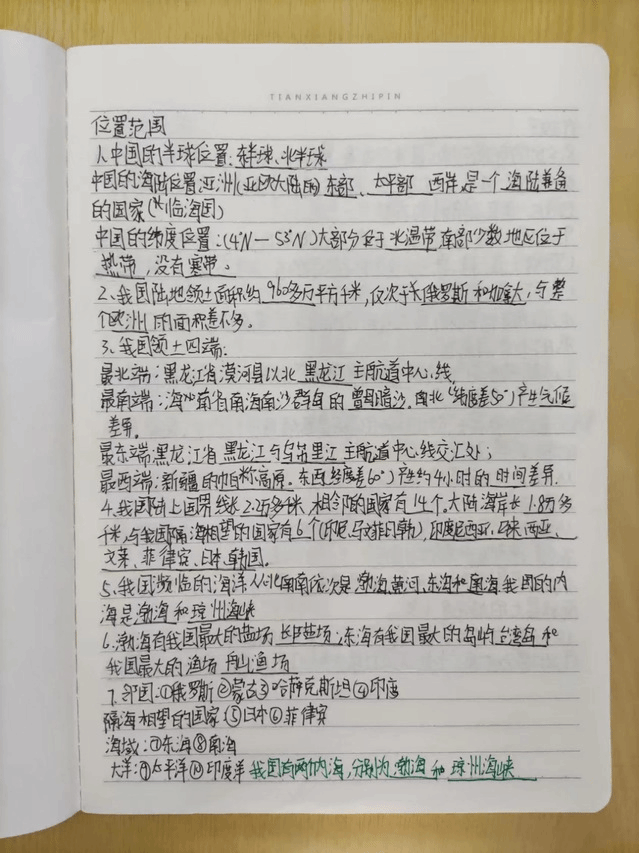 TIANXIANGZHIPIN
位置范围
1、中国的半球位置:东半球、北半球
中国的海陆位置:亚洲(亚欧大陆的)东部、太平洋 西岸,是一个海陆兼备
的国家(临海国)
中国的纬度位置:(4°N—53°N)大部分位于北温带,南部少数地区位于
热带,没有寒带。
2、我国陆地领土面积约960多万平方千米,仅次于俄罗斯和加拿大,与整
个欧洲的面积差不多。
3、我国领土四端:
最北端:黑龙江省漠河县以北黑龙江主航道中心线
最南端:海南省南海南沙群岛的曾母暗沙。南北(纬度差50°)产生气候
差异。
最东端:黑龙江省黑龙江与乌苏里江主航道中心线交汇处;
最西端:新疆的帕米尔高原。东西(经度差60°)产生约4小时的时间差异.
4、我国陆上国界线长2.2万多千米,相邻的国家有14个。大陆海岸长1.8万多
千米,与我国隔海相望的国家有6个(印尼、马文菲日韩),印度尼西亚、马来西亚、
文莱、菲律宾、日本、韩国。
5、我国濒临的海洋从北到南依次是渤海、黄河、东海和南海.我国的内
海是渤海和琼州海峡
6、渤海有我国最大的盐场 长芦盐场;东海有我国最大的岛屿台湾岛和
我国最大的渔场 舟山渔场
7、邻国:①俄罗斯②蒙古③哈萨克斯坦④印度
隔海相望的国家:⑤日本⑥菲律宾
海域:⑦东海⑧南海
大洋:⑨太平洋⑩印度洋 我国有两个内海,分别为渤海和琼州海峡